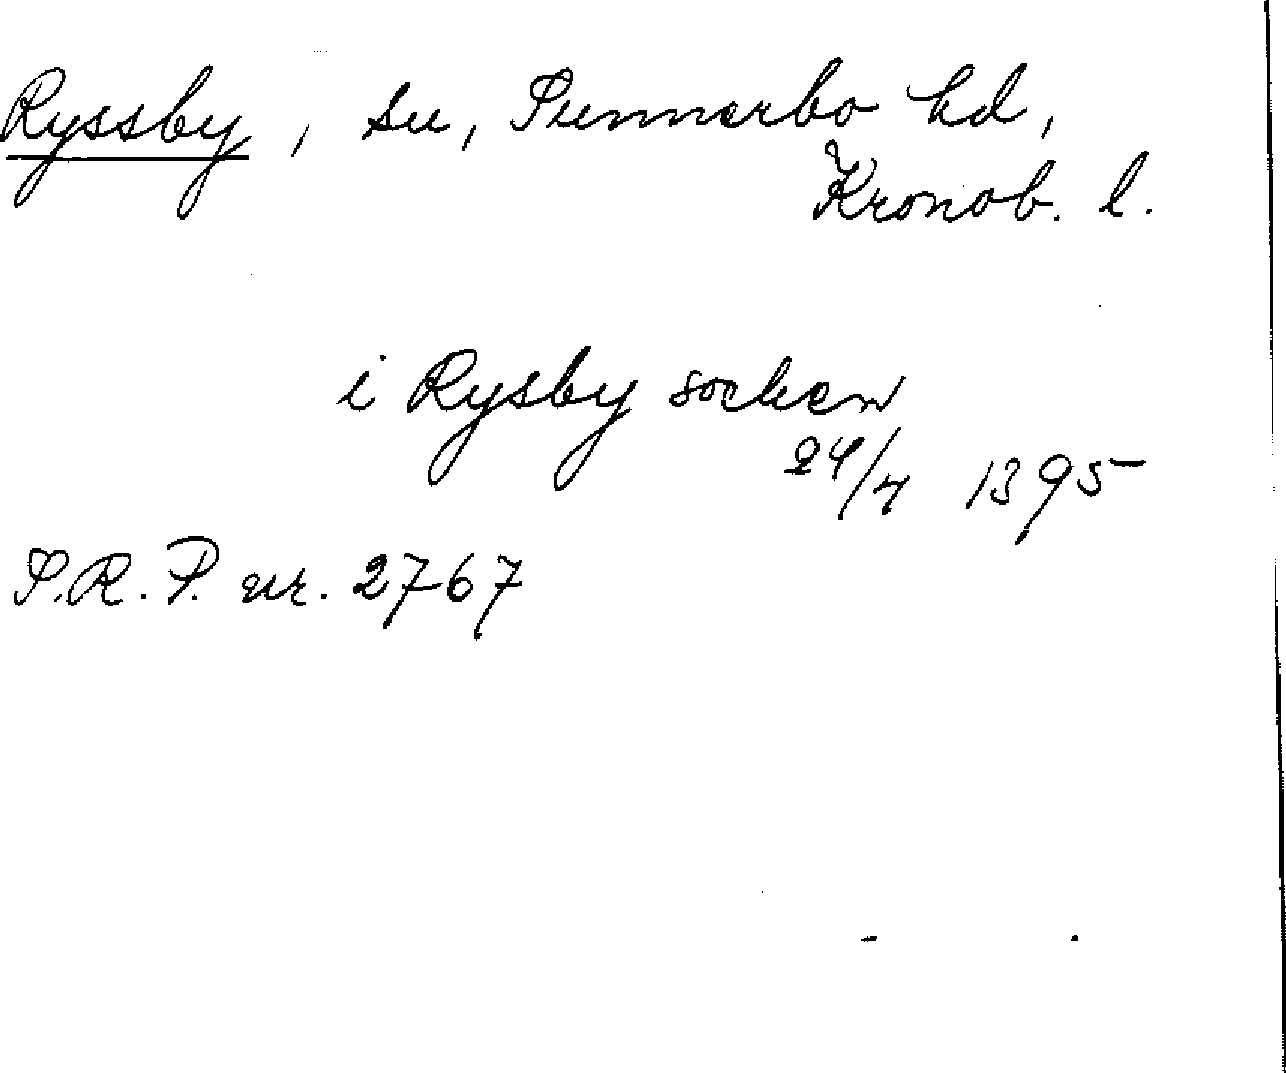 Ryssby, sn, Sunnerbo hd,
Kronob. l.
i Rysby socken
24/4 1395
S.R.P. nr. 2767